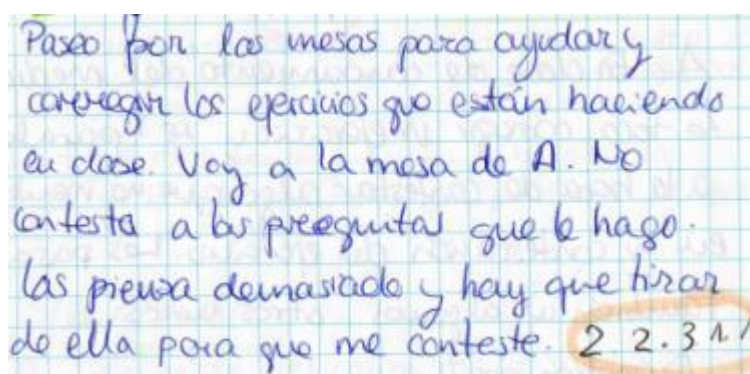 Paseo por las mesas para ayudar y
corregir los ejercicios que están haciendo
en clase. Voy a la mesa de A. No
contesta a las preguntas que le hago.
Las piensa demasiado y hay que tirar
de ella para que me conteste. 2 2.3